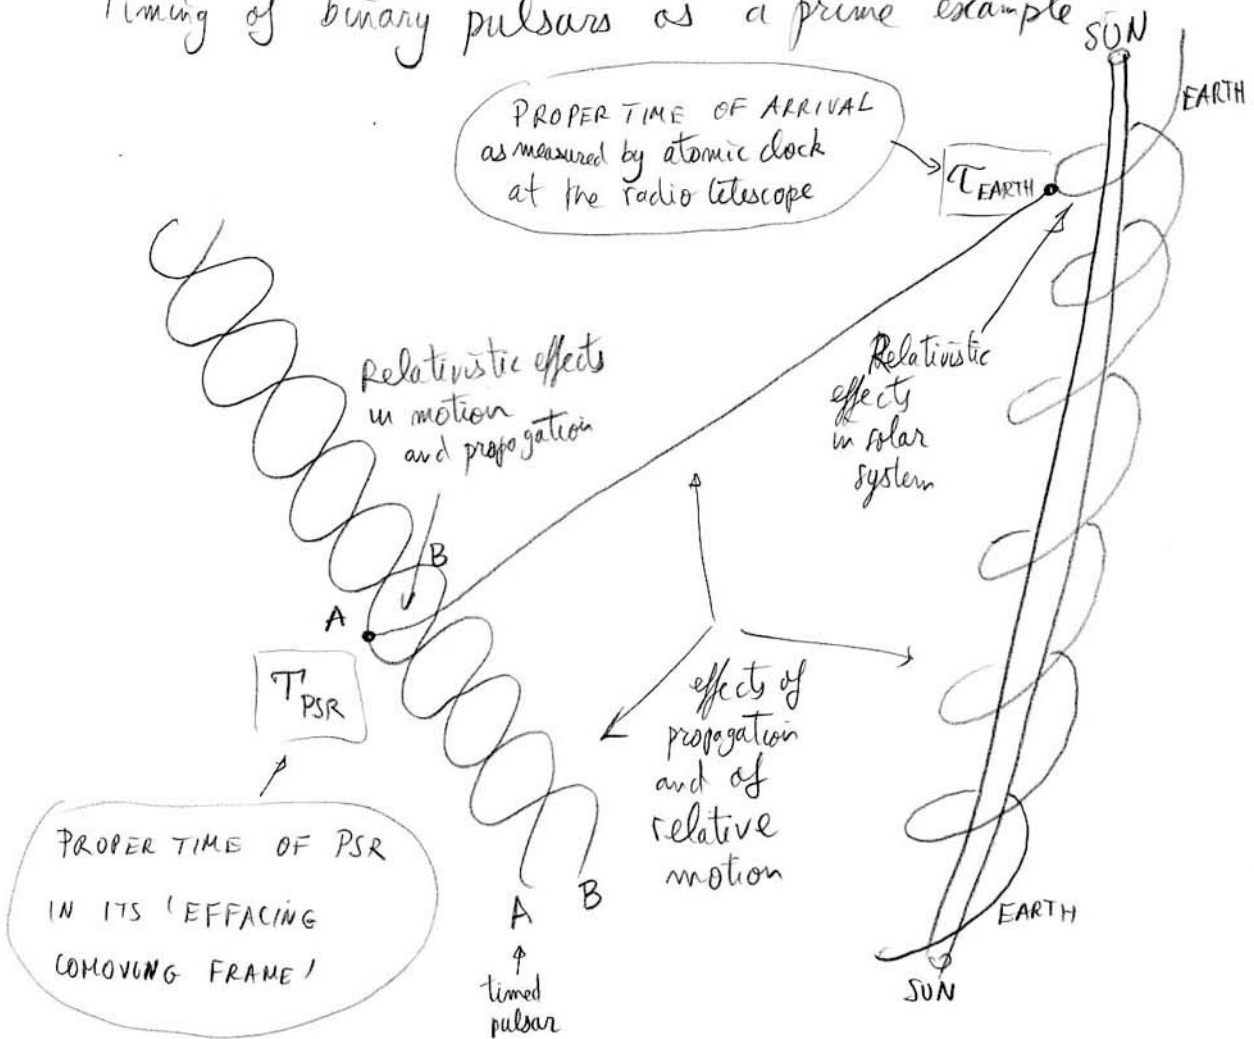 Timing of binary pulsars as a prime example
SUN
EARTH
PROPER TIME OF ARRIVAL
as measured by atomic clock
at the radio telescope
τ EARTH
Relativistic effects
in motion
and propagation
Relativistic
effects
in solar
system
B
A
T PSR
effects of
propagation
and of
relative
motion
PROPER TIME OF PSR
IN ITS 'EFFACING
COMOVING FRAME'
A
B
timed
pulsar
EARTH
SUN